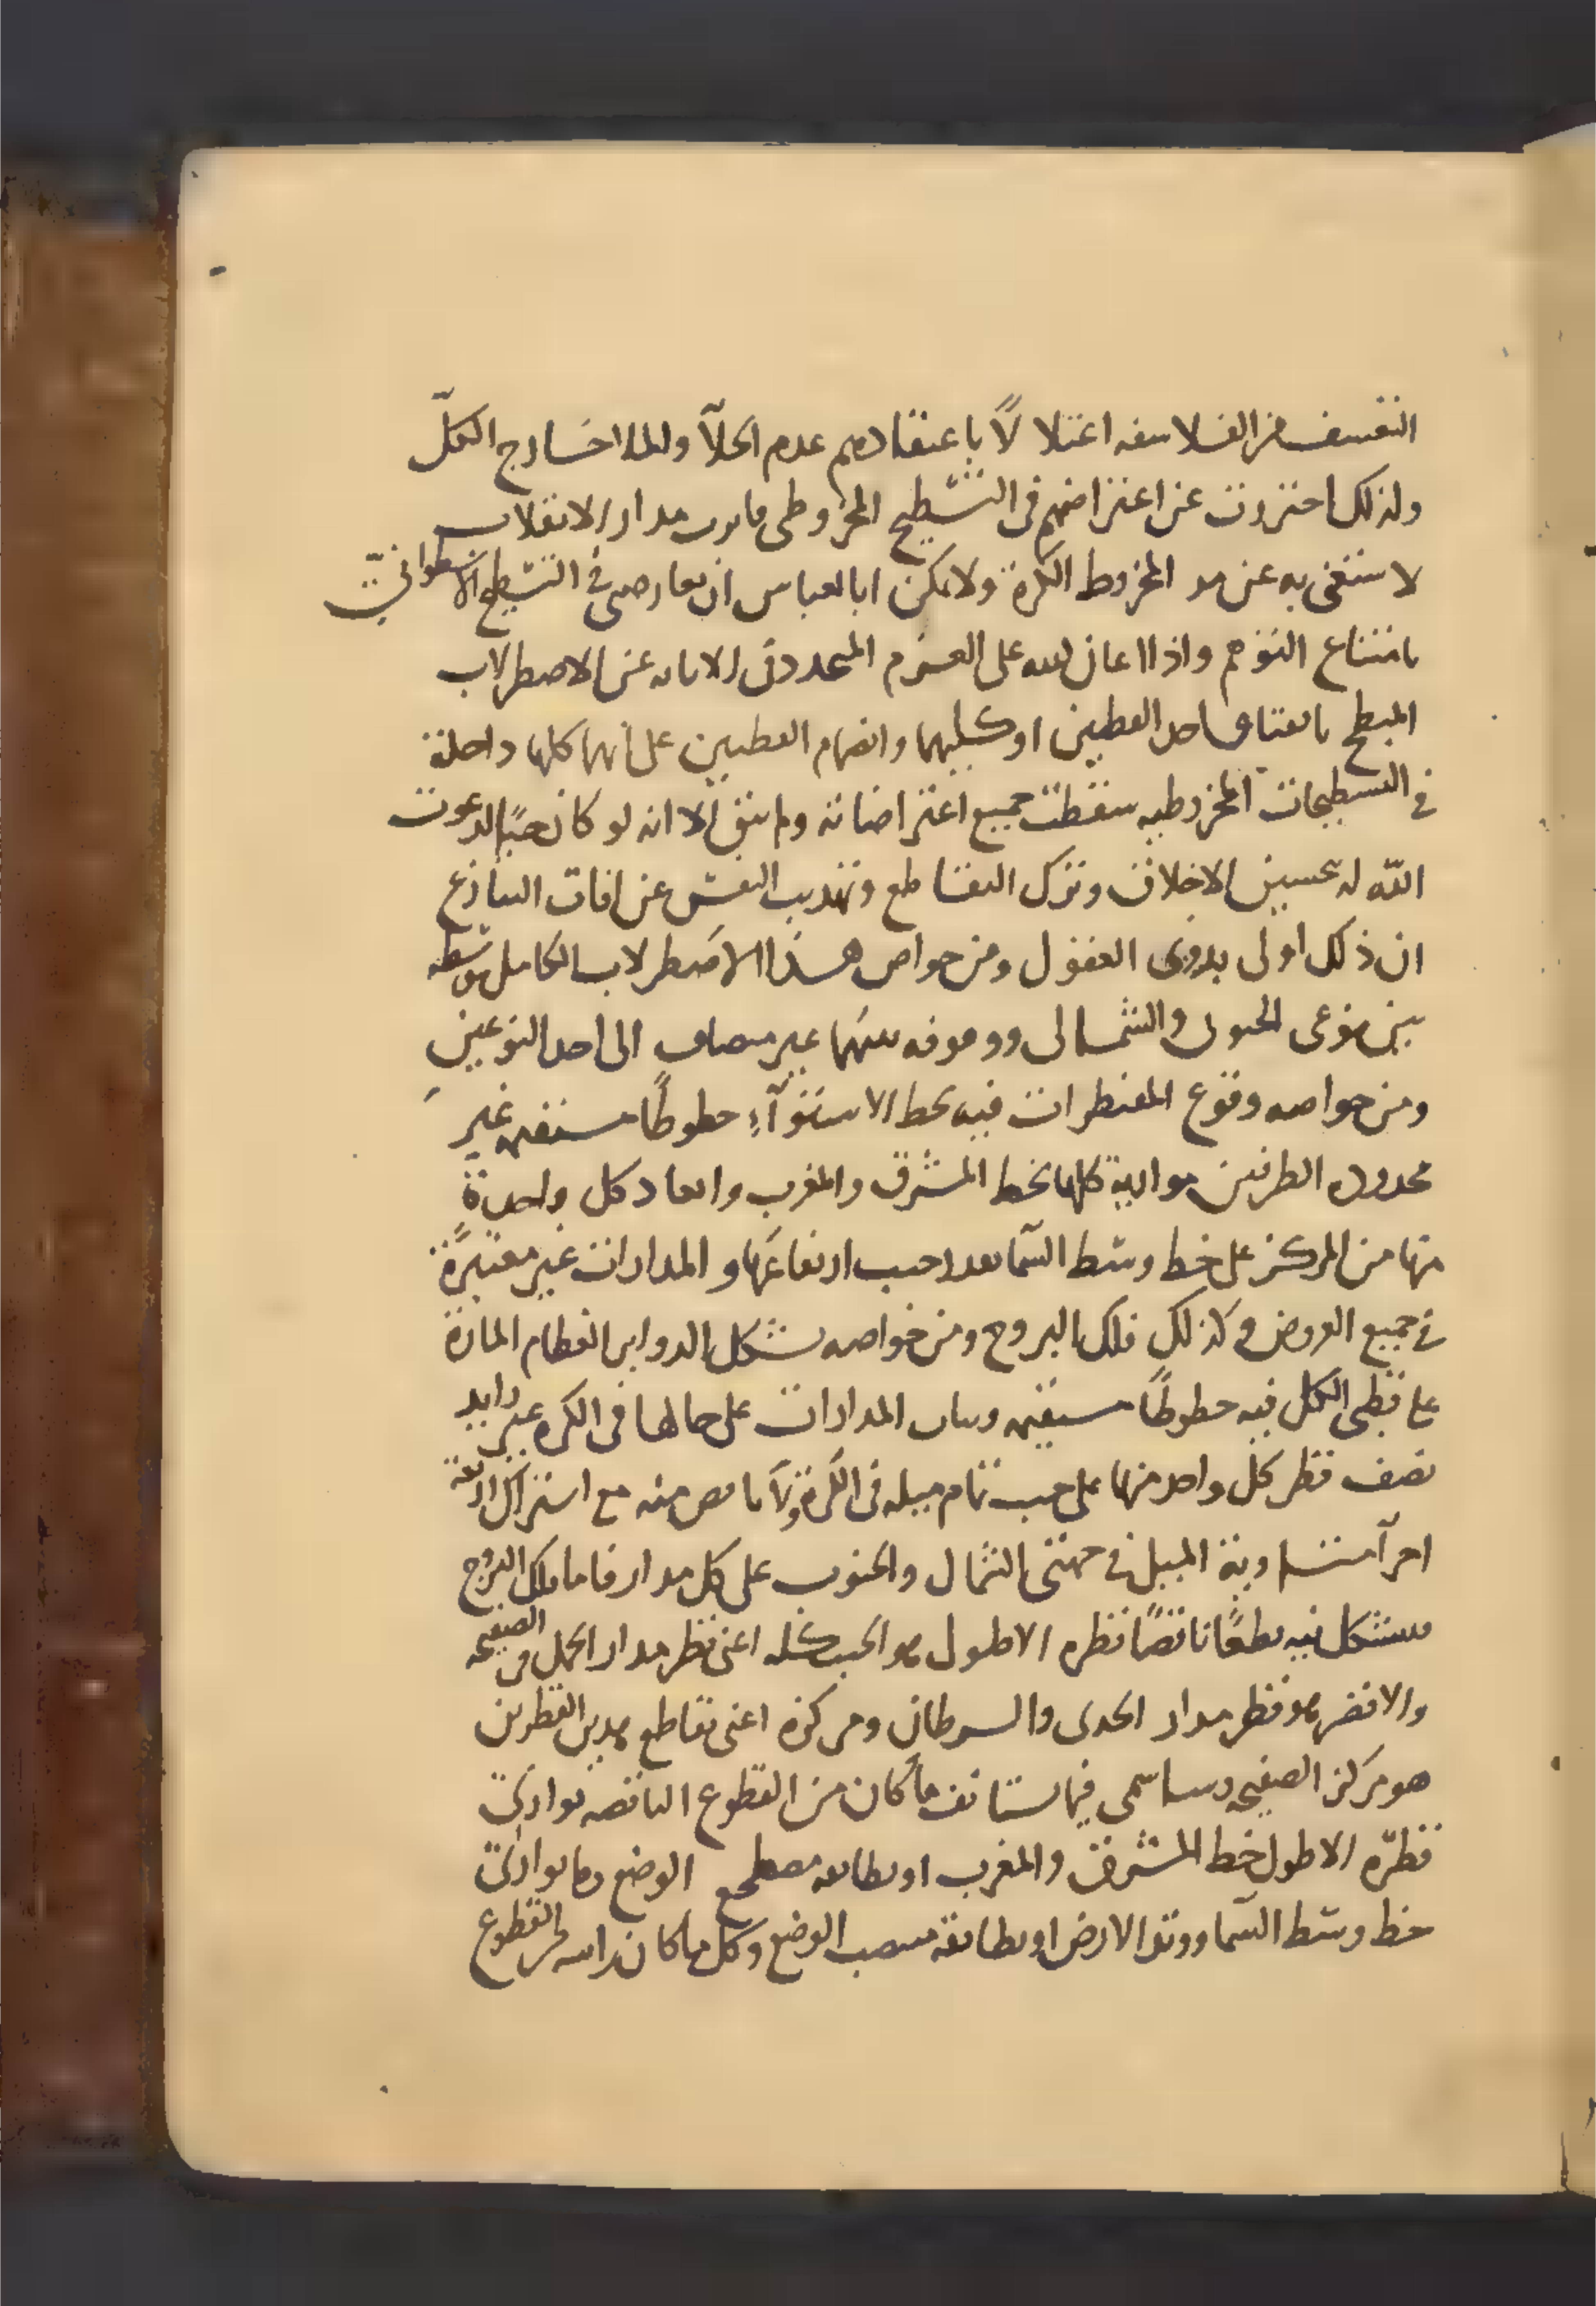 التفسف من الفلاسفه اعتلالًا باعتقادهم عدم الخلآ والملا خارج الكلّ
ولذلك احترزت عن اعتراضهم في التسطيح المخروطي مدار الانقلاب
لا ستغنى به عن المخروط الكرة ولا يمكن ابا العباس ان يعارضني في التسطيح الاسطوانيّ
بامتناع التوهم واذا اعان الله على العزم المتحدد في الابانه عن الاصطرلاب
المبطح احد القطبين او كليهما وانضمام القطبين على انهما كلها داخلة
في التسطيحات المخروطيه سقطت جميع اعتراضاته ولم تبق الا انه لو كان حيًا لدعوت
الله له بتحسين الاخلاق وترك التقاطع وتهذيب النفس عن افات التنازع
ان ذلك اولى بذوى العقول ومن خواص هذا الاصطرلاب الكامل توسطه
بين نوعى الجنوبي والشمالى ووقوفه بينهما غير مضاف الى احد النوعين
ومن خواصه وقوع المقنطرات فيه لخط الاستوآءِ خطوطًا مستقيمه غير
محدوده الطرفين موازية كلها لخط المشرق والمغرب وابعاد كل واحدة
منها من المركز على خط وسط السّما بعدد جيب ارتفاعها والمدارات غير معتبرة
في جميع العروض وكذلك فلك البروج ومن خواصه تشكل الدواير العظام المارة
على قطبى الكل فيه خطوطًا مستقيمه وثبات المدارات على حالها في الكره غير زايد
نصف قطر كل واحد منها على جيب تمام ميله في الكرة ولا ناقص منه مع اشتراك اربعة
اجزآ متساوية الميل في جهتى الشمال والجنوب على كل مدار فاما فلك البروج
فيتشكل فيه قطعًا ناقصًا قطره الاطول هو الجيب كله اعنى قطر مدار الحمل في الصفيحه
والاقصر هو قطر مدار الجدى والسرطان ومركزه اعنى تقاطع هذين القطرين
هو مركز الصفيحه وساسمى فيما يستانف ما كان من القطوع الناقصه يوازى
قطره الاطول خط المشرق والمغرب او يطابقه مضطجع الوضع وما يوازى
خط وسط السّما ووتد الارض او يطابقه منتصب الوضع وكل ما كان راسه القطوع